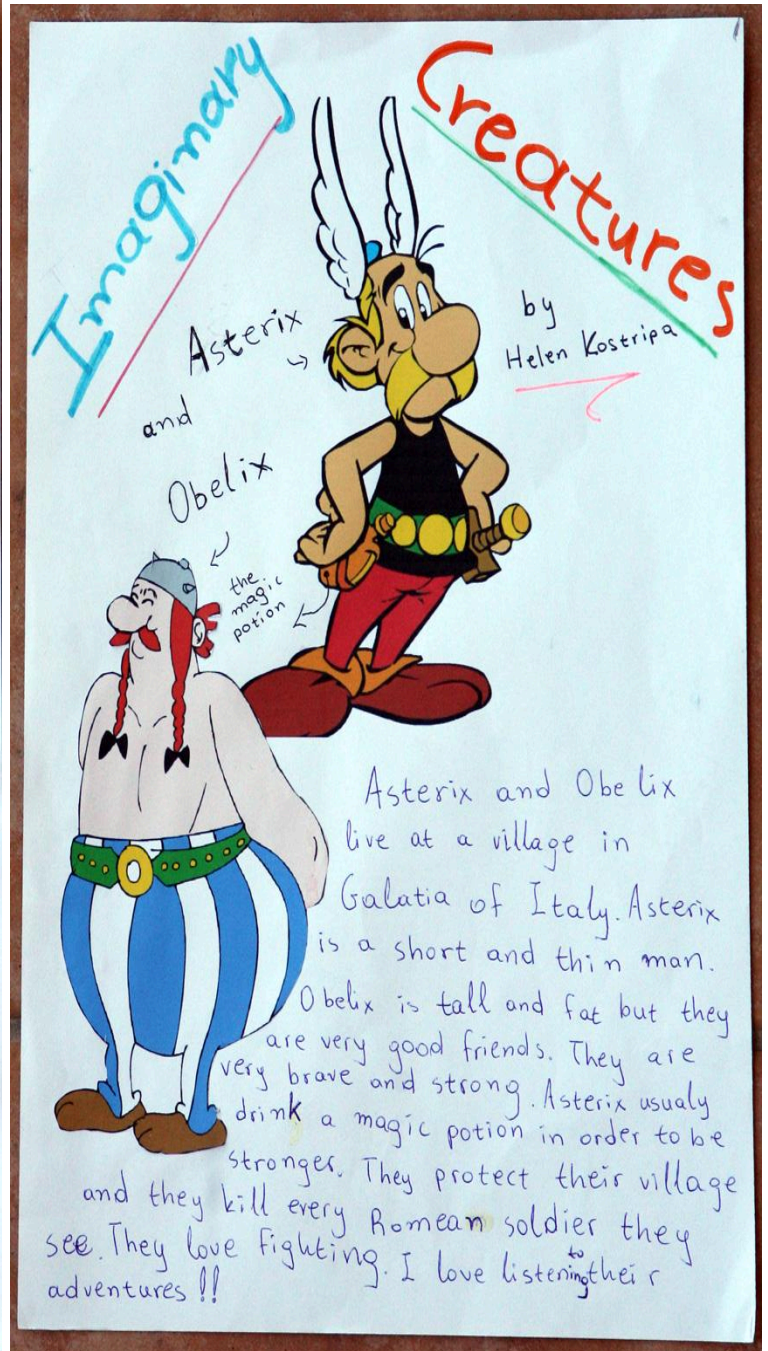 Imaginary
Creatures
by
Helen Kostripa
Asterix
and
Obelix
the
magic
potion
Asterix and Obelix
live at a village in
Galatia of Italy. Asterix
is a short and thin man.
Obelix is tall and fat but they
are very good friends. They are
very brave and strong. Asterix usualy
drink a magic potion in order to be
stronger. They protect their village
and they kill every Romean soldier they
see. They love fighting. I love listening to their
adventures!!